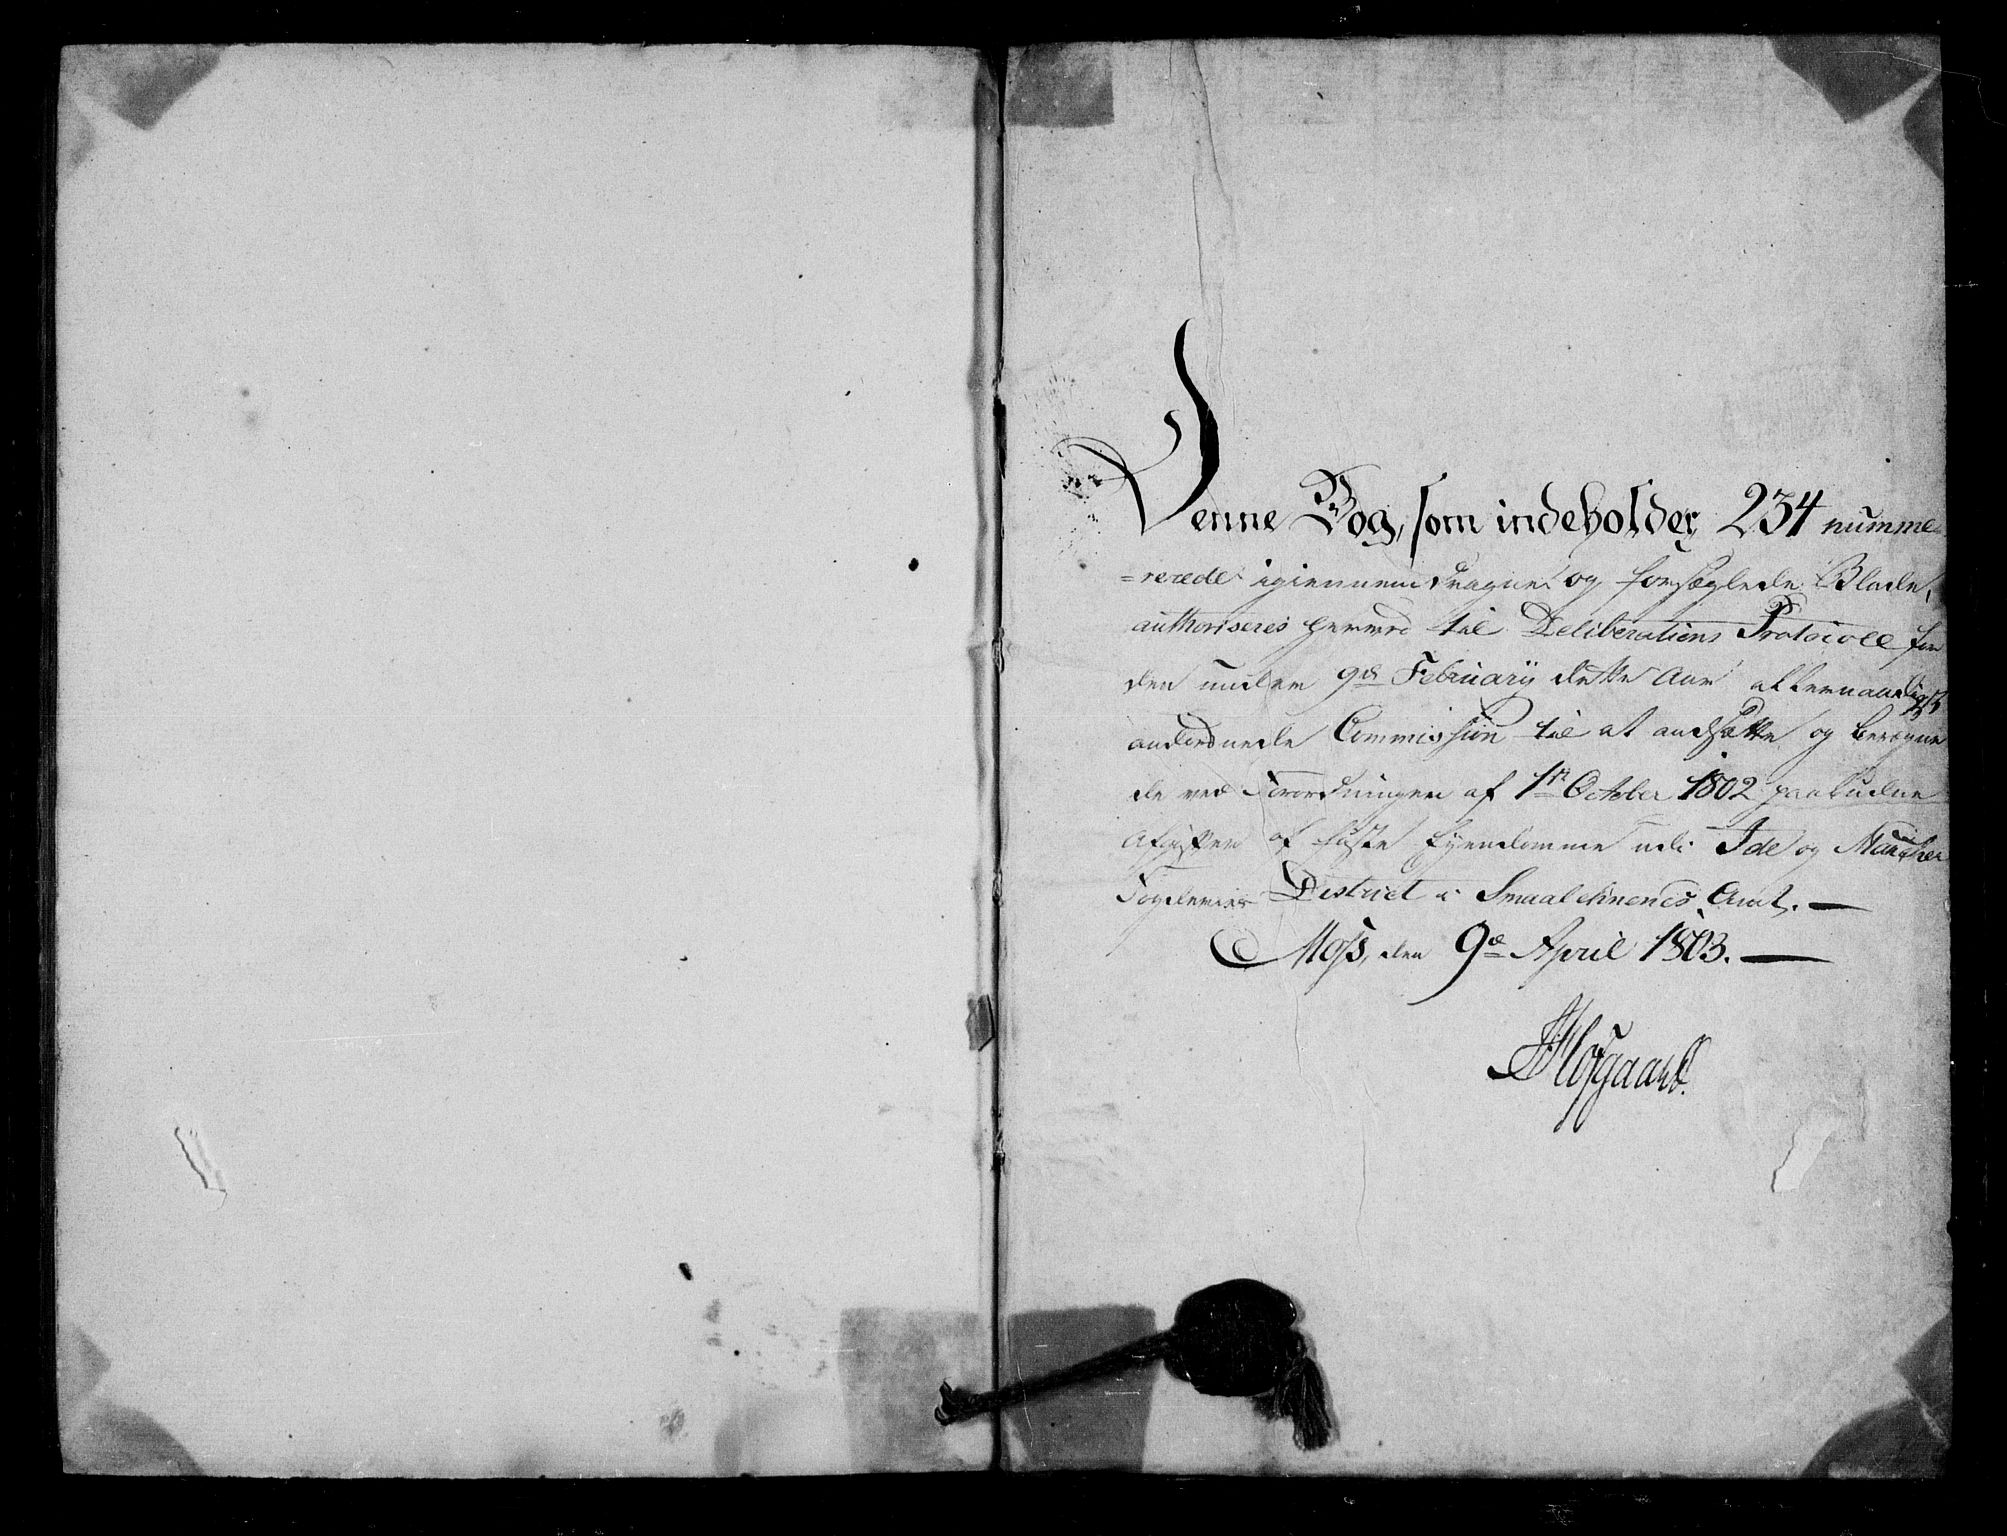 Denne Bog, som indeholder, 234 numme-
=rerede igiennemdragne og forseglede Blade,
authoriseres herved til Deliberations Protocoll for
den under 9de Februarij dette Aar allernaadigst
andordnede Commission til at andsætte og beregne
de ved Forordningen af 1ste October 1802 paabudne
Afgifter af faste Eyendomme udi Ide og Marcher
Fogderies District i Smaalehnenes Amt. —
Moss, den 9de April 1803. —
Hofgaard.